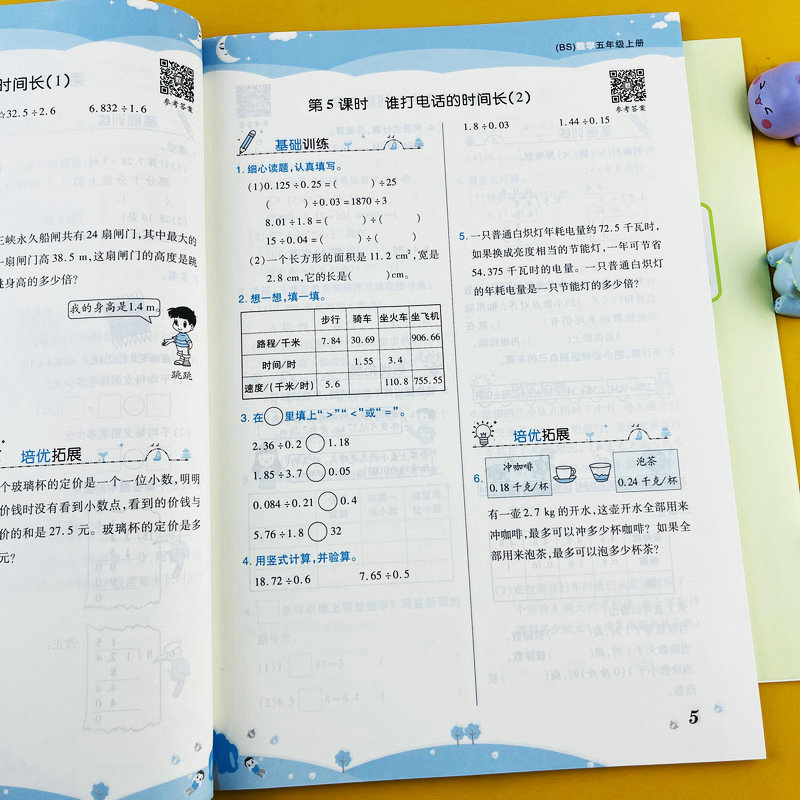 时间长(1)
参考答案
☆32.5÷2.6 6.832÷1.6
三峡永久船闸共有 24 扇闸门,其中最大的
一扇闸门高 38.5 m,这扇闸门的高度是跳
跳身高的多少倍?
我的身高是1.4 m。
跳跳
培优拓展
个玻璃杯的定价是一个一位小数,明明
价钱时没有看到小数点,看到的价钱与
价的和是 27.5 元。玻璃杯的定价是多
元?
(BS)数学五年级上册
第 5 课时 谁打电话的时间长(2)
参考答案
基础训练
1. 细心读题,认真填写。
(1)0.125÷0.25=( )÷25
( )÷0.03=1870÷3
8.01÷1.8=( )÷( )
15÷0.04=( )÷( )
(2)一个长方形的面积是 11.2 cm²,宽是
2.8 cm,它的长是( )cm。
2. 想一想,填一填。
步行 骑车 坐火车 坐飞机
路程/千米 7.84 30.69 906.66
时间/时 1.55 3.4
速度/(千米/时) 5.6 110.8 755.55
3. 在○里填上“>”“<”或“=”。
2.36÷0.2○1.18
1.85÷3.7○0.05
0.084÷0.21○0.4
5.76÷1.8○32
4. 用竖式计算,并验算。
18.72÷0.6 7.65÷0.5
1.8÷0.03 1.44÷0.15
5. 一只普通白炽灯年耗电量约 72.5 千瓦时,
如果换成亮度相当的节能灯,一年可节省
54.375 千瓦时的电量。一只普通白炽灯
的年耗电量是一只节能灯的多少倍?
培优拓展
6.
冲咖啡
0.18 千克/杯
泡茶
0.24 千克/杯
有一壶 2.7 kg 的开水,这壶开水全部用来
冲咖啡,最多可以冲多少杯咖啡?如果全
部用来泡茶,最多可以泡多少杯茶?
5